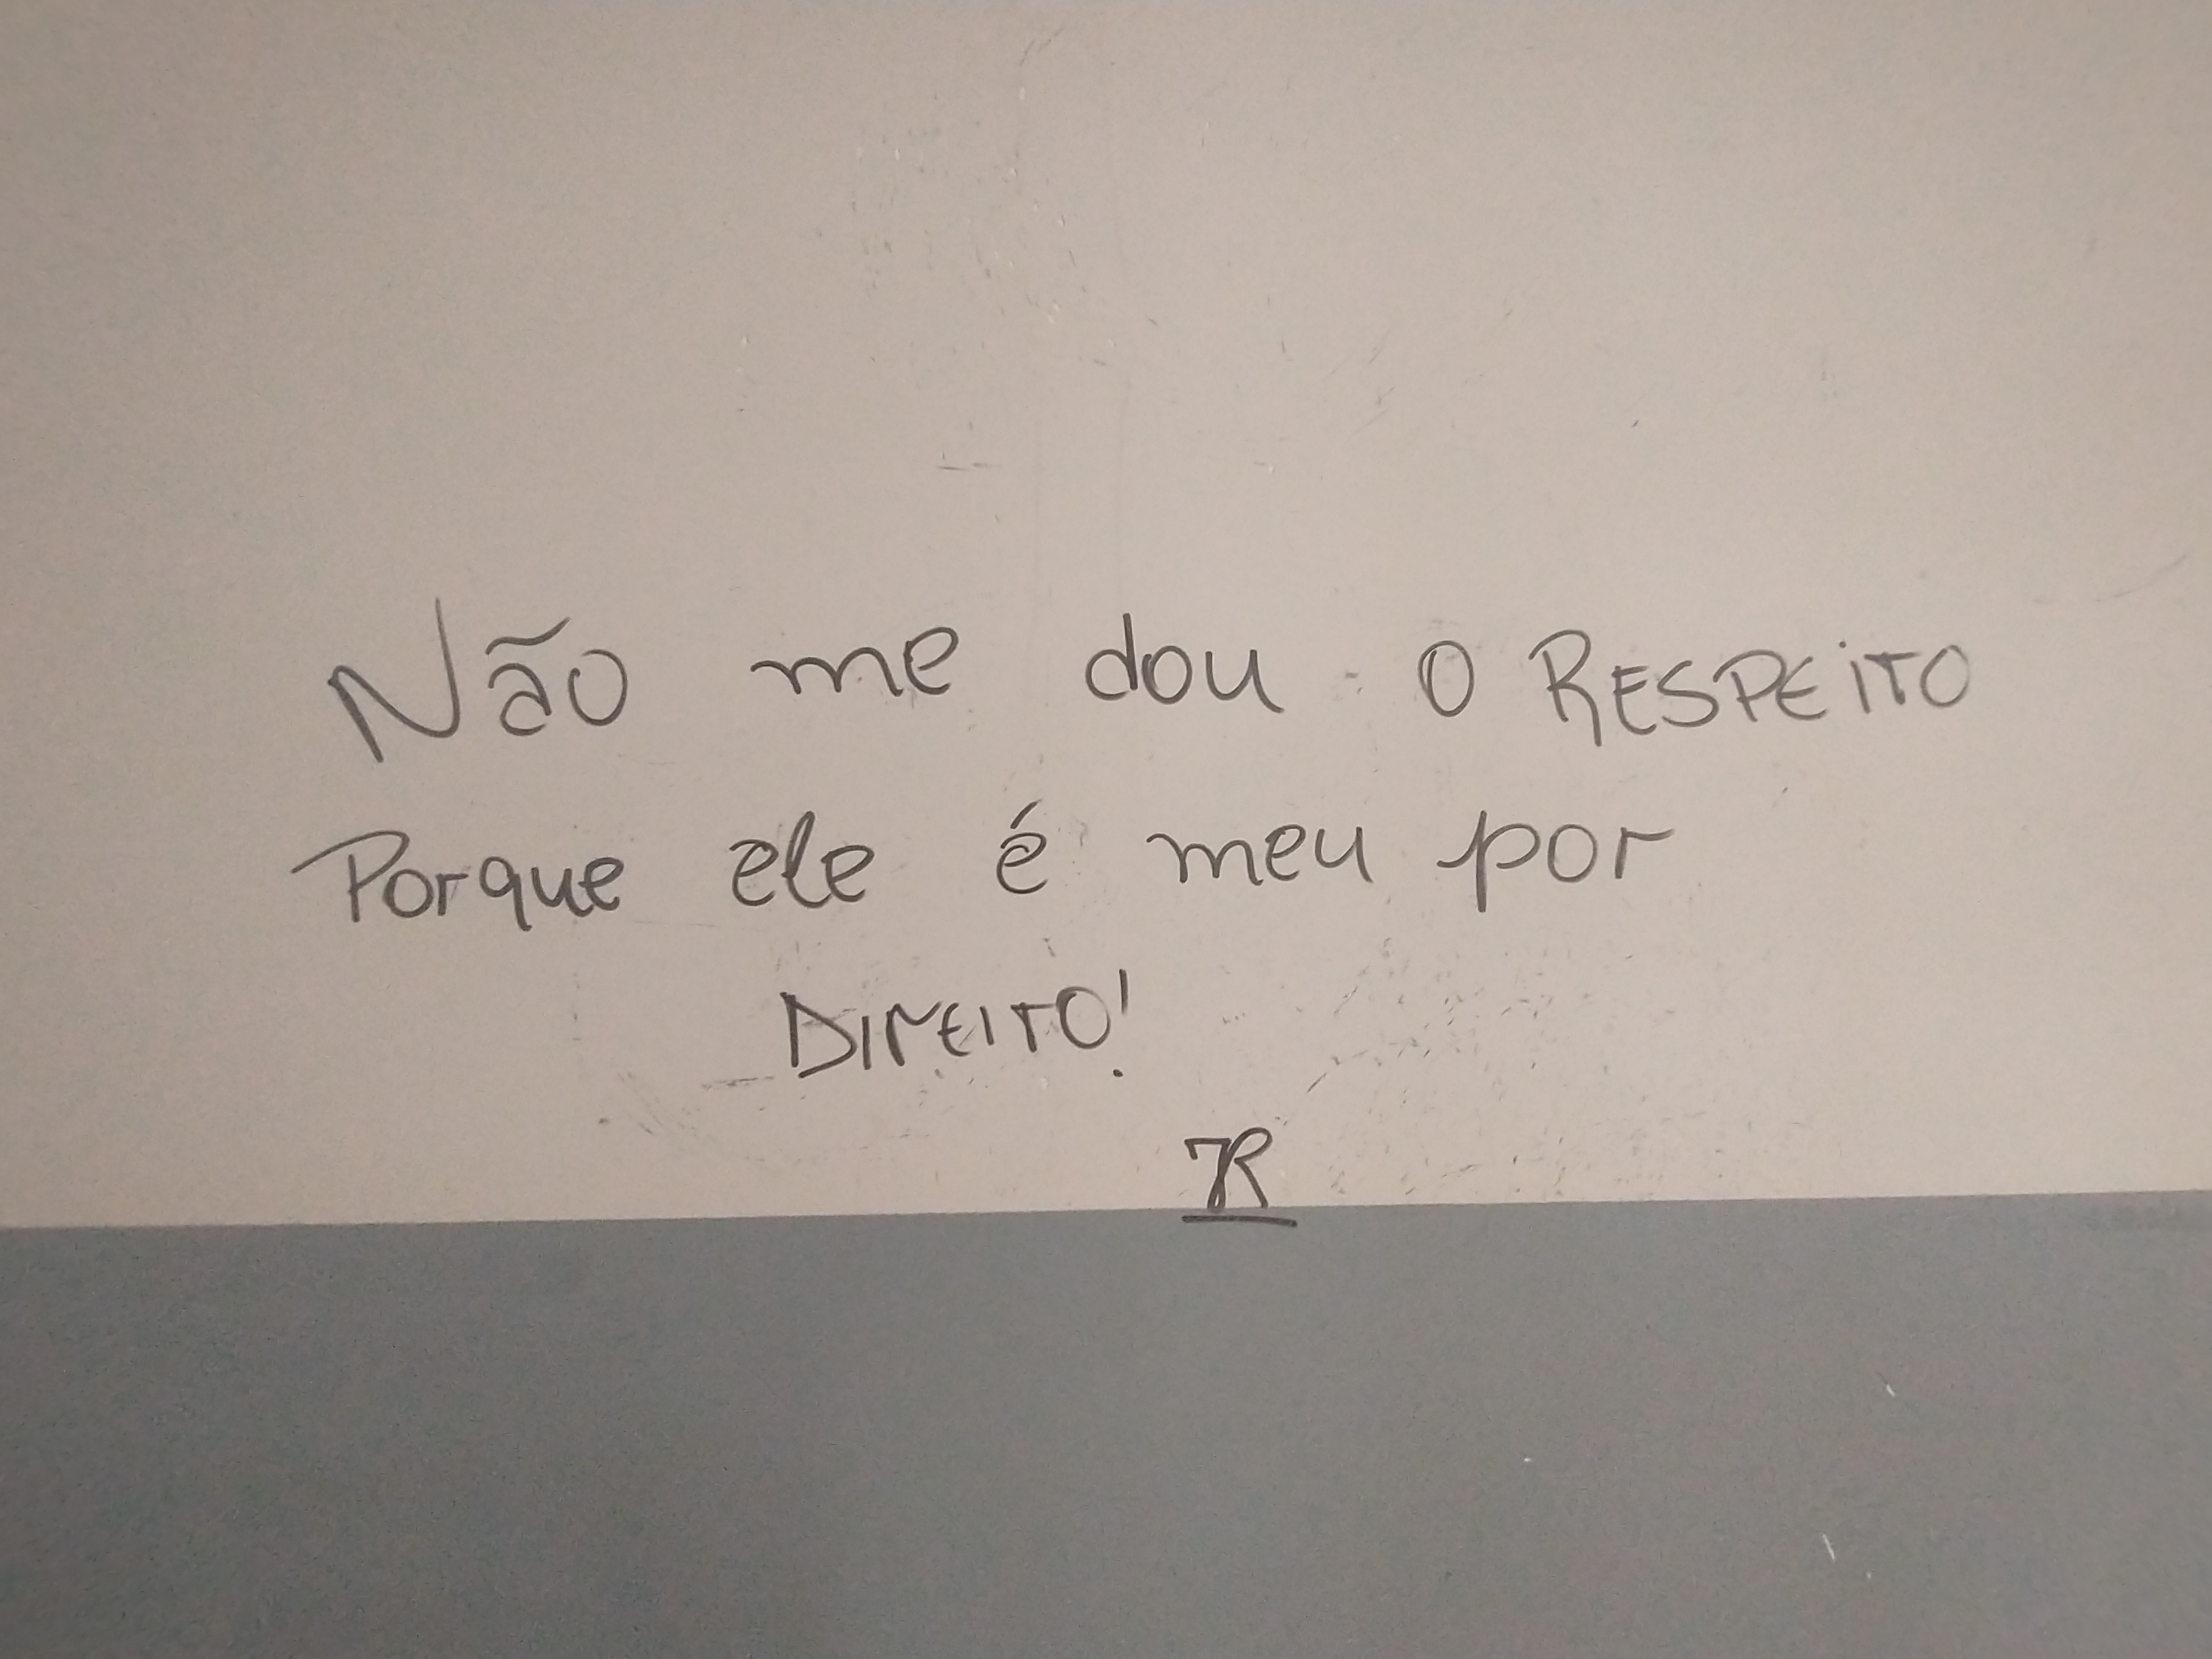 Não me dou o RESPEiTO
Porque ele é meu por
DIrEITO!